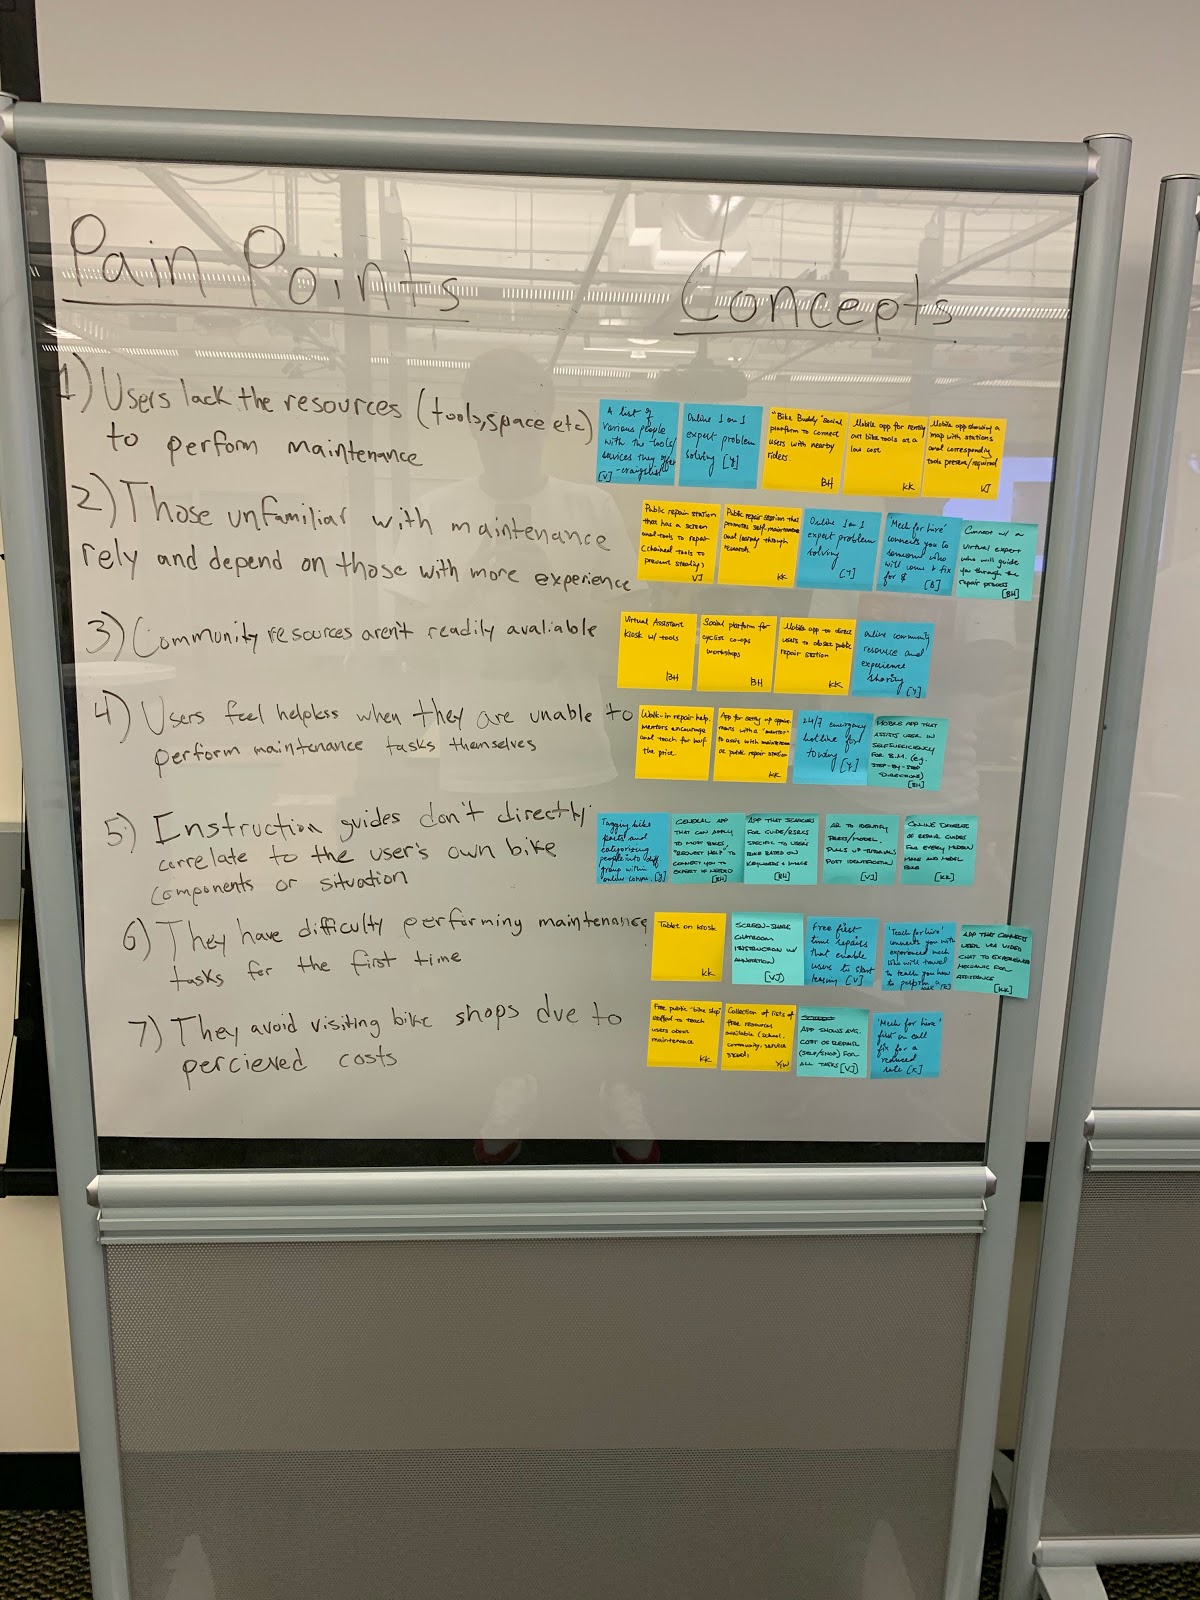 Pain Points
Concepts
1) Users lack the resources (tools, space etc)
to perform maintenance
A list of
various people
with the tools/
services they offer
- craigslist
[V]
Online 1 on 1
expert problem
solving [Y]
"Bike Buddy" Social
platform to connect
users with nearby
riders.
BH
Mobile app for renting
out bike tools at a
low cost
KK
Mobile app showing a
map with stations
and corresponding
tools present/required
VJ
2) Those unfamiliar with maintenance
rely and depend on those with more experience
Public repair station
that has a screen
and tools to repair
(chained tools to
prevent stealing)
VJ
Public repair station that
promotes self-maintenance
and learning through
KK
Online 1 on 1
expert problem
solving
[Y]
'Mech for hire'
connects you to
someone who
will come & fix
for $ [B]
Connect w/ a
virtual expert
who will guide
you through the
repair process
[BH]
3) Community resources aren't readily avaliable
Virtual Assistant
Kiosk w/ tools
BH
Social platform for
cyclist co-ops
workshops
BH
Mobile app to direct
users to closest public
repair station
KK
Online community
resource and
experience
sharing
[Y]
4) Users feel helpless when they are unable to
perform maintenance tasks themselves
Walk-in repair help,
mentors encourage
and teach for half
the price
App for setting up appoint-
ments with a "mentor"
to assist with maintenance
at public repair station
KK
24/7 emergency
hotline for
towing
[Y]
MOBILE APP THAT
ASSISTS USER IN
SELF SUFFICIENCY
FOR B.M. (e.g.
STEP-BY-STEP
DIRECTIONS)
[BH]
5) Instruction guides don't directly
correlate to the user's own bike
components or situation
Tagging bike
parts and
categorizing
people into diff.
group within
online comm. [Y]
GENERAL APP
THAT CAN APPLY
TO MOST BIKES,
"REQUEST HELP" TO
CONNECT YOU TO
EXPERT IF NEEDED
[BH]
APP THAT SEARCHES
FOR GUIDE/RSRCS
SPECIFIC TO USERS
BIKE BASED ON
KEYWORDS & IMAGE
[BH]
AR TO IDENTIFY
PULLS UP TUTORIALS
POST IDENTIFICATION
[VJ]
ONLINE DATABASE
OF REPAIR GUIDES
FOR EVERY
MAKE AND MODEL
BIKE
[KK]
6) They have difficulty performing maintenance
tasks for the first time
Tablet on kiosk
KK
SCREEN-SHARE
CHATROOM
INSTRUCTION W/
ANNOTATION
[VJ]
Free first
time repairs
that enable
users to start
[V]
'Teach for hire'
connects you with
experienced mech
who will travel
to teach you how
to perform
APP THAT CONNECTS
USER VIA VIDEO
CHAT TO EXPERIENCED
MECHANIC FOR
ASSISTANCE
[KK]
7) They avoid visiting bike shops due to
percieved costs
Free public "bike shop"
staffed to teach
users about
maintenance
KK
Collection of lists of
free resources
available (school,
community, service
YW
APP SHOWS AVG.
COST OF REPAIR
(SELF/SHOP) FOR
ALL TASKS [VJ]
'Mech for hire'
first on call
fix for a
reduced
rate [K]